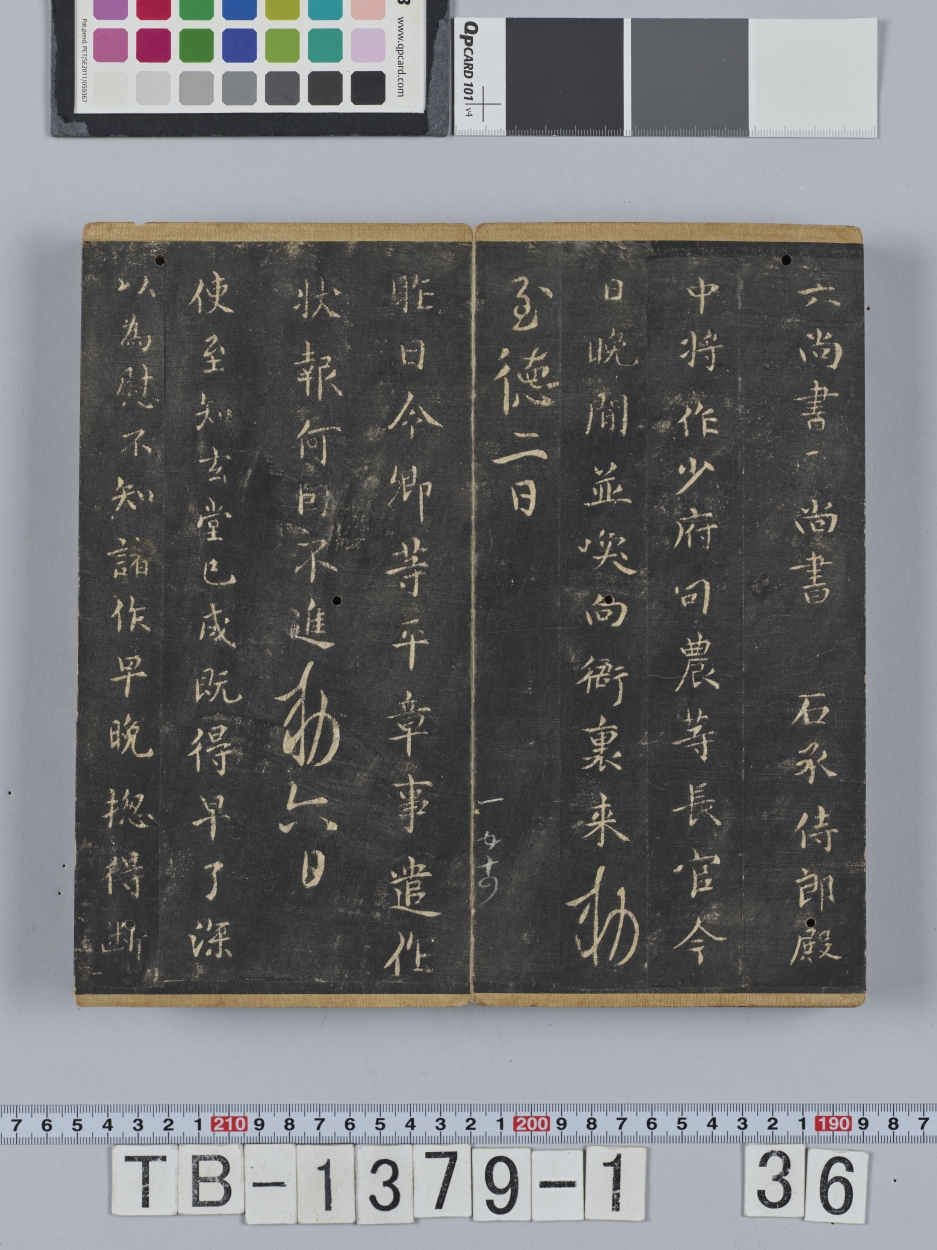 六尚書一尚書 石永侍郎殿
中将作少府司農等長官今
日晚間並喚向衙裏来勅
至徳二日
昨日今卿等平章事遣作
状報何因不進勅六日
使至知玄堂已成既得早了深
以為慰不知諸作早晚揔得断
一 
www.qpcard.com
Pat.pend. PCT/SE2011/050367
QPCARD 101 v4
7 6 5 4 3 2 1 210 9 8 7 6 5 4 3 2 1 200 9 8 7 6 5 4 3 2 1 190 9 8 7
TB-1379-1 36